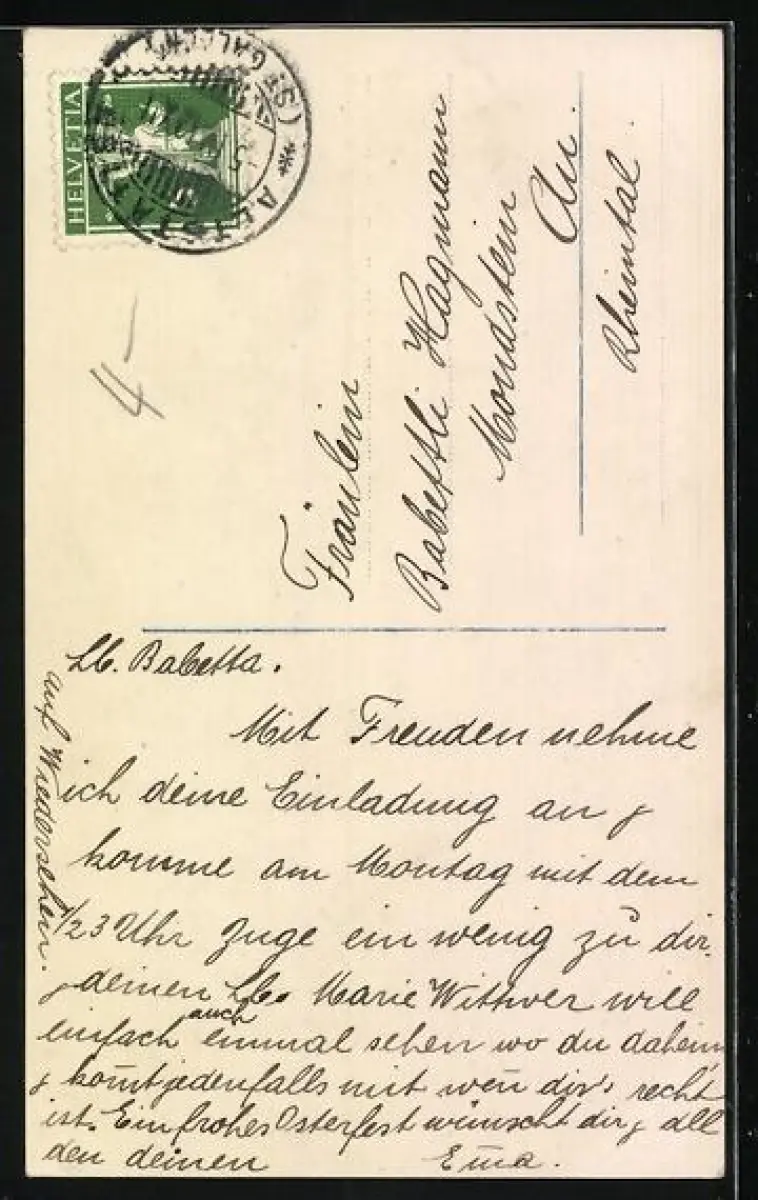 HELVETIA
ALTSTÄTTEN (ST. GALLEN)
4 –
Fräulein
Babettli Hagmann
Mondstein
Au.
Rheintal.
Lb. Babetta.
Mit Freuden nehme
ich deine Einladung an &
komme am Montag mit dem
1/2 3 Uhr Zuge ein wenig zu dir.
& deinen Lb. Marie Wittwer will
einfach auch einmal sehen wo du daheim
& kom̄t jedenfalls mit wen̄ dir's recht
ist. Ein frohes Osterfest wünscht dir & all
den deinen Em̄a.
auf Wiedersehen.